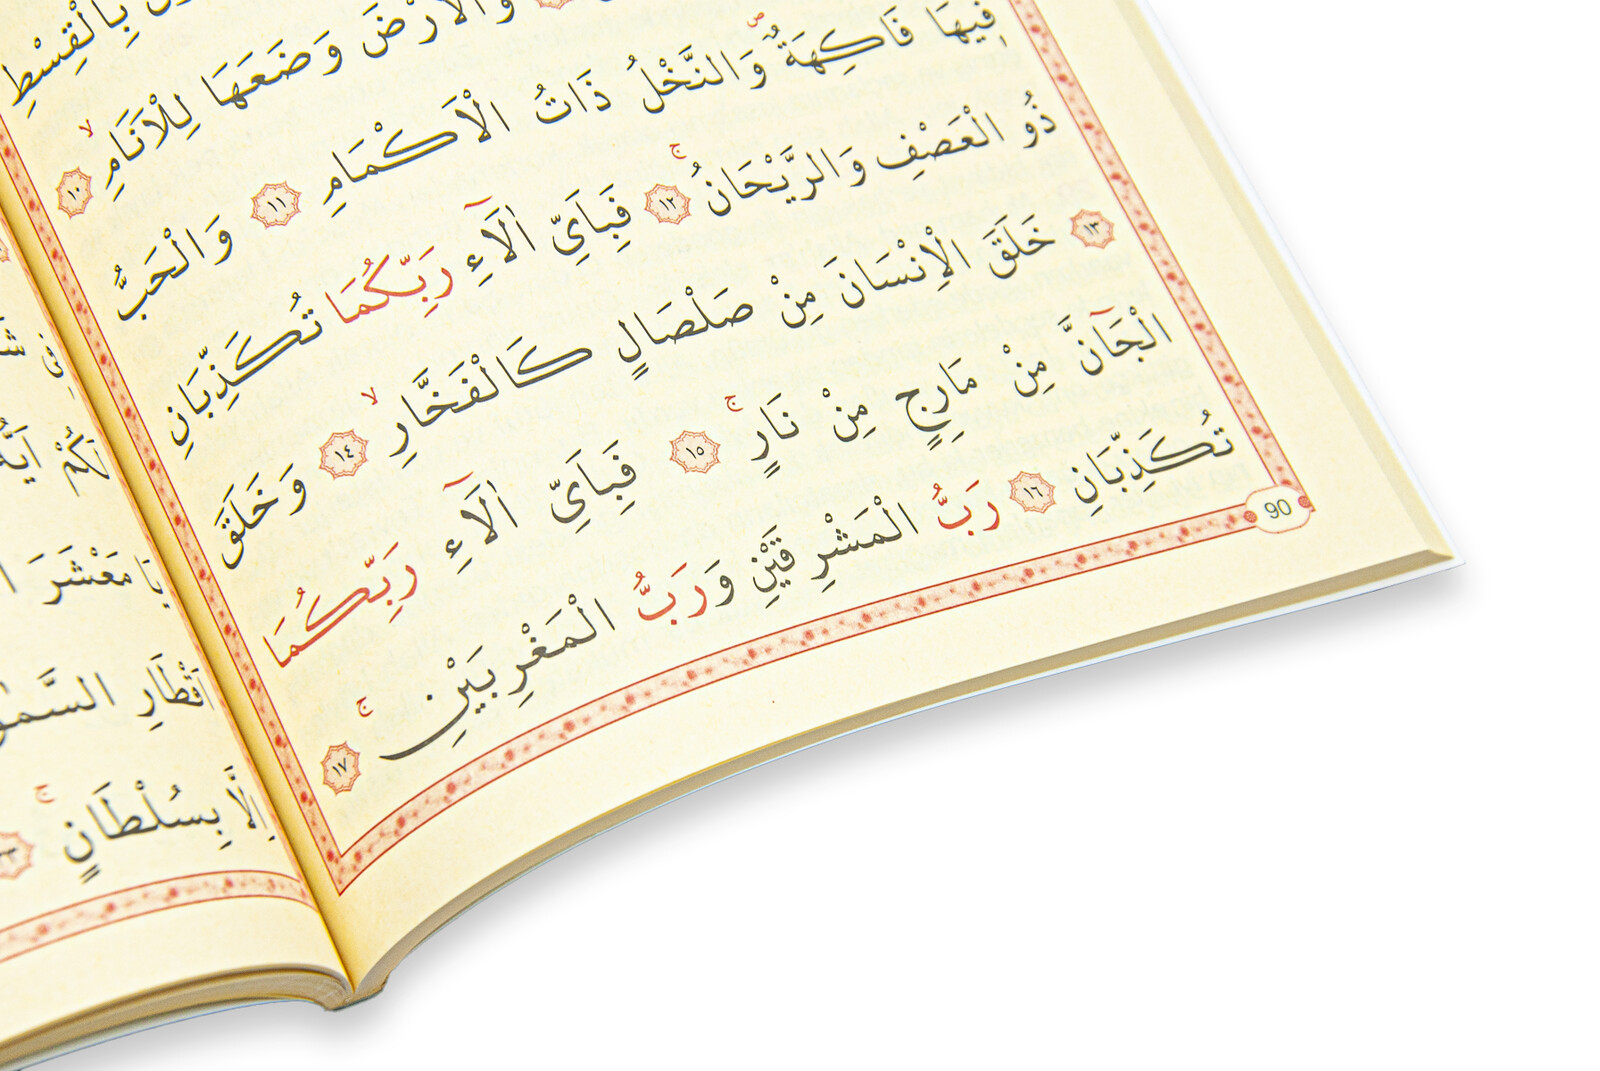 بِالْقِسْطِ
وَالْاَرْضَ وَضَعَهَا لِلْاَنَامِۙ ﴿١٠﴾
فِيهَا فَاكِهَةٌۖ وَالنَّخْلُ ذَاتُ الْاَكْمَامِ ﴿١١﴾ وَالْحَبُّ
ذُو الْعَصْفِ وَالرَّيْحَانُۚ ﴿١٢﴾ فَبِاَيِّ اٰلَٓاءِ رَبِّكُمَا تُكَذِّبَانِ
﴿١٣﴾ خَلَقَ الْاِنْسَانَ مِنْ صَلْصَالٍ كَالْفَخَّارِۙ ﴿١٤﴾ وَخَلَقَ
الْجَٓانَّ مِنْ مَارِجٍ مِنْ نَارٍۚ ﴿١٥﴾ فَبِاَيِّ اٰلَٓاءِ رَبِّكُمَا
تُكَذِّبَانِ ﴿١٦﴾ رَبُّ الْمَشْرِقَيْنِ وَرَبُّ الْمَغْرِبَيْنِۚ ﴿١٧﴾
90
لَكُمْ اَيُّهَ
يَا مَعْشَرَ
اَقْطَارِ
اِلَّا بِسُلْطَانٍۚ